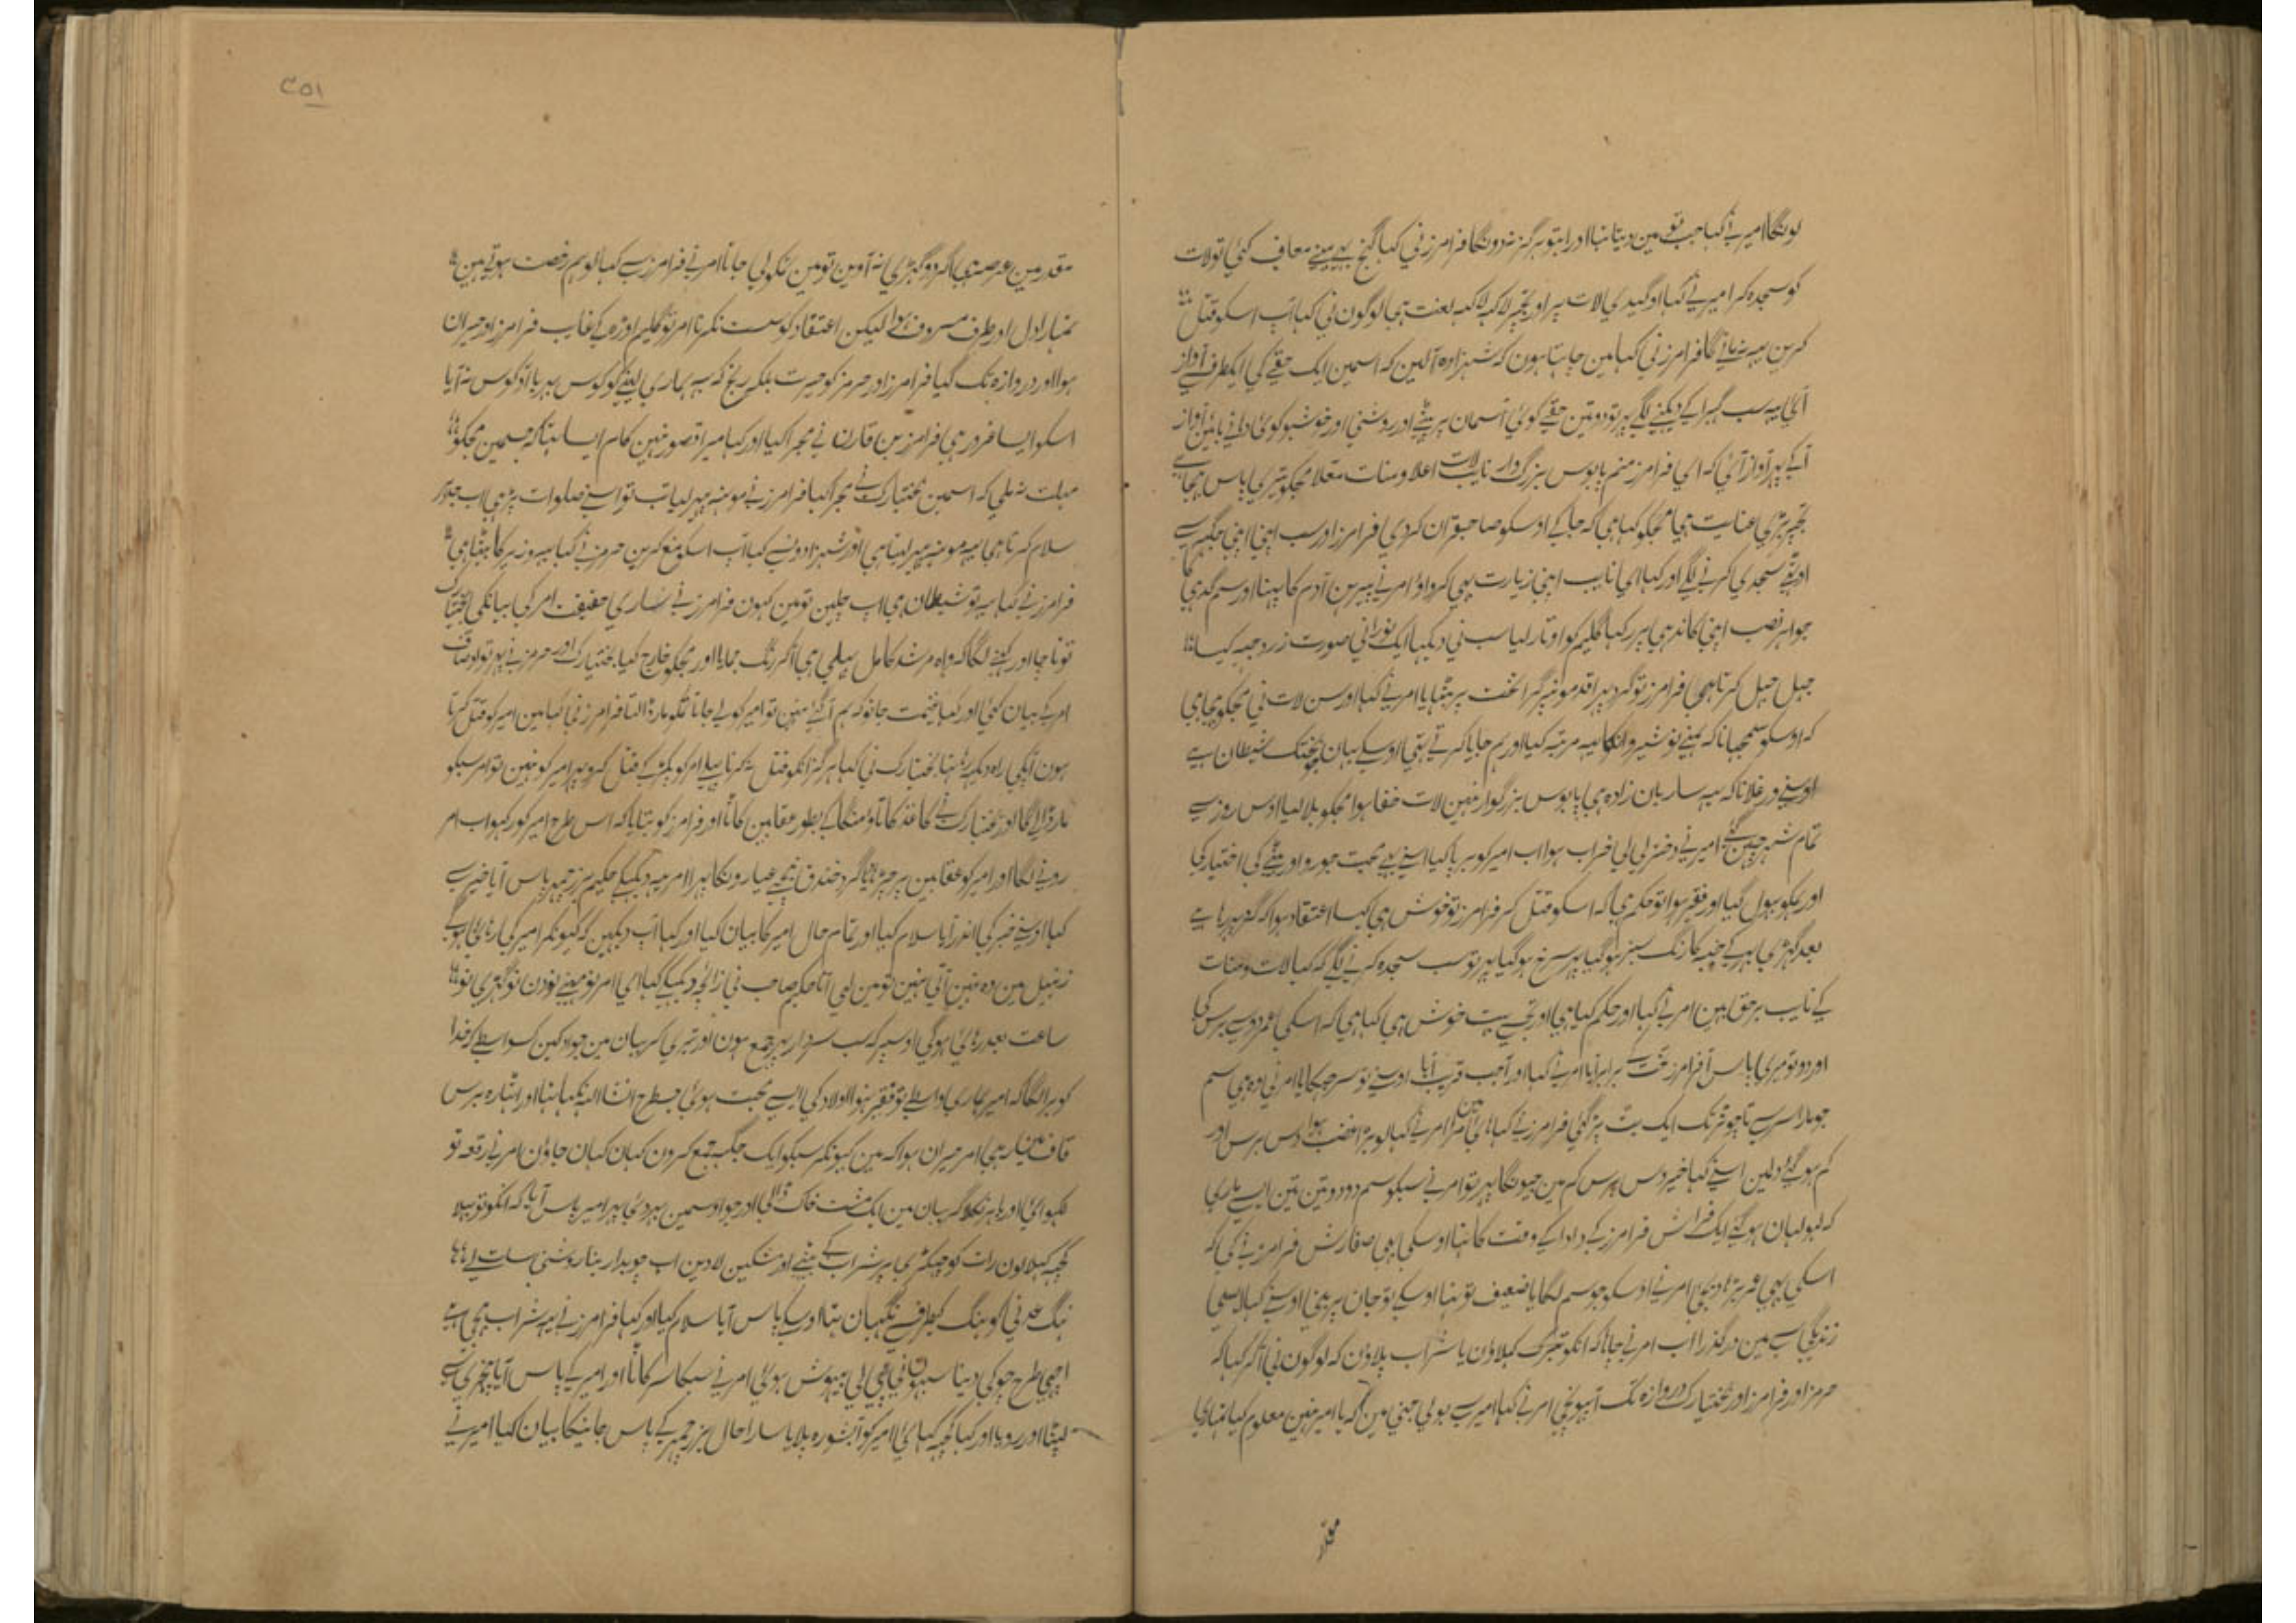 لونگا امیر نے کہا جب تو مین دیتا نہا اور ابتو ہرگز نہ دونگا فرامرز نی کہا گنج بہی مینے معاف کئی تو لات
کو سجدہ کر امیر نے کہا او گیدی لات پر اور تجہپر لاکہہ لاکہہ لعنت ہی لوگون نی کہا اب اسکو قتل
کرین یہہ نہ مانے گا فرامرز نی کہا مین جاہتا ہون کہ شہزادہ آلین کہ اسمین ایک حقے کی ایکطرف سے آواز
آئی یہہ سب گہبرا کے دیکہنے لگے پہر تو دو تین حقے کوئی آسمان پر پہٹے اور روشنی اور خوشبو کوئی داہنے بائین آواز
آکے پہر آواز آئی کہ ای فرامرز منم پاپوس بزرگوار نایب لات اعلا و منات معلا مجکو تیری پاس بہیجا ہے
تجہپر بڑی عنایت ہی مجکو کہا ہی کہ جا کے اوسکو صاحبقران کر دی فرامرز اور سب اپنی اپنی جگہہ سے
اوٹہے سجدی کرنے لگے اور کہا ای نایب اپنی زیارت بہی کرواؤ امر نے پیرہن آدم کا پہنا اور سم گدہی کا
جواہر نصب اپنی کاندہی پر رکہا گلیم کو اوتار لیا سب نی دیکہا ایک نورانی صورت زرد جبہ کیسا
جہل جہل کرتا ہی فرامرز تو گرد پہرا قدمونپر گرا تخت پر بٹہایا امر نے کہا اور سن لات نی مجکو بہیجا ہی
کہ اوسکو سمجہانا کہ ہمنے نوشیروانکا یہہ مرتبہ کیا اور ہم جایا کرتے تہی اوسکے یہان بختک شیطان ہے
اوسنے ورغلانا کہ یہہ ساربان زادہ ہی پاپوس بزرگوار نہین لات خفا ہوا مجکو بلا لیا اوس روز سے
تمام شہر چہین گئے امیر نے دختر لی لی خراب ہوا اب امیر کو برپا کیا اسنے بہی محبت جورو اور بیٹے کی اختیار کی
اور ہمکو بہول گیا اور فقیر ہوا تو حکم ہی کہ اسکو قتل کر فرامرز تو خوش ہی کیسا اعتقاد ہوا کہ گرد پہر رہا ہے
بعد گہڑی بہر کے جبہ کا رنگ سبز ہو گیا پہر سرخ ہو گیا پہر تو سب سجدہ کرنے لگے کہ کیا لات و منات
کے نایب برحق ہین امر نے کہا اور حکم کیا ہی اور تجہسے بہت خوش ہی کہا ہی کہ اسکی عمر دو سے برس کی
اور دو تو میری پاس آ فرامرز تخت کے برابر آیا امر نے کہا اور آ جب قریب آیا اوسنے تو سر جہکایا امر نی وہ ہی سم
جو مارا سر سے تا چوتڑ تک ایک بت پڑ گئی فرامرز نے کہا ہائی مین مرا امر نے کہا لو بڑا غضب ہوا دس برس اور
کم ہو گئے ولین اسنے کہا خیر دس برس کم مین جیونگا پہر تو امر نے سبکو سم دو دو تین تین ایسے ماری
کہ لہو لہان ہو گئے ایک فراش فرامرز کے دادا کے وقت کا تہا اوسکی بہی صفارش فرامرز نے کی کہ
اسکی بہی عمر بڑہا دیجئی امر نے اوسکو جو سم لگایا ضعیف تو تہا اوسکے تو جان پر بنی اوسنے کہا ایسی
زندگی سے مین درگذرا اب امر نے چاہا کہ انکو تبرک کہلاؤن یا شراب پلاؤن کہ لوگون نی آکر کہا کہ
حرمز اور فرامرز اور بختیارک دروازہ تک آپہونچی امر نے کہا امیر سے بولی جنی مین کہ یا امیر نہین معلوم کیا تمہاری
مقدر
۳۵۱
مقدر مین عرصہ ہی اگر دو گہڑی نہ آوین تو مین تمکو لی جاتا امر نے فرامرز سے کہا لو ہم رخصت ہوتے ہین
تمہارا دل اور طرف مصروف ہوا لیکن اعتقاد کو سست نکرنا امر تو گلیم اوڑہ کے غایب فرامرز اور حیران
ہوا اور دروازہ تک گیا فرامرز اور حرمز کو حیرت بلکہ رنج کہ یہہ ہماری لینے کو کوس بہر یا آد کوس نہ آیا
اسکو ایسا غرور ہی فرامرز بن قارن نے مجرا کیا اور کہا میرا قصور نہین کام ایسا تہا کہ جسمین مجکو
مہلت نہ ملی کہ اسمین بختیارک نے مجرا کیا فرامرز نے مونہہ پہیر لیا تب تو اسنے صلوات پڑہی اب جو
سلام کرتا ہی یہہ مونہہ پہیر لیتا ہی اور شہزادونسے کہا آپ اسکو منع کرین حرمز نے کہا یہہ وزیر کا بیٹا ہی
فرامرز نے کہا یہہ تو شیطان ہی اب چلین تو مین کہون فرامرز نے ساری حقیقت امر کی بیانکی بختیارک
تو ناچا اور کہنے لگا کہ واہ مرشد کامل پہلے ہی آکر رنگ جمایا اور مجکو خارج کیا بختیارک اور حرمز نے پہر تو اوصاف
امر کے بیان کئی اور کہا غنیمت جانو کہ ہم آ گئے نہین تو امیر کو لے جاتا تمکو مار ڈالتا فرامرز نی کہا مین امیر کو قتل کرتا
ہون آپکی راہ دیکہہ رہا تہا بختیارک نی کہا ہرگز انکو قتل نہ کرنا پہلے امر کو پکڑ کے قتل کرو پہر امیر کو نہین تو امر سبکو
مار ڈالے گا اور بختیارک نے کاغذ کا تاؤ منگا کے بطور عقابین کاٹا اور فرامرز کو بتایا کہ اس طرح امیر کو رکہو اب امر
رونے لگا اور امیر کو عقابین پر چڑہایا گرد خندق نیچے عیارونکا پہرا امر یہہ دیکہکے حکیم بزرجمہر پاس آیا خبر سے
کہا اوسنے خبر کی اندر آیا سلام کیا اور تمام حال امیر کا بیان کیا اور کہا آپ دیکہین کہ کیونکر امیر کی رہائی ہو گے
زنبیل مین وہ نہین آتی نہین تو مین لی آتا حکیم صاحب نی زائچہ دیکہکے کہا ای امر نو مہینے نو دن نو گہڑی نو
ساعت بعد رہائی ہو گی اوسپر کہ سب سردار پہر جمع ہون اور تیری گریبان مین جوادکین کسواسطے کہ خدا
کو برا لگا کہ امیر ہماری واسطے تو فقیر نہوا اولاد کی ایسے محبت ہوئی جسطرح انشا اللہ نکہا تہا اور اٹہارہ برس
قاف مین رہی امر حیران ہوا کہ مین کیونکر سبکو ایک جگہہ جمع کرون کہان کہان جاؤن امر نے رقعہ تو
لکہوائی اور باہر نکلا گریبان مین ایک مشت خاک ڈالی اور جو اوسمین پہر دئی پہر امیر پاس آیا کہ انکو تو پہلا
کچہہ کہلا لون رات کو چہکڑی پر شراب کے شیشے اور مشکین لادین اب چوبدار بنا روشنی ساتہہ لے
نہنگ عرنی کو نہنگ کیطرف سے نگہبان تہا اوسکے پاس آیا سلام کیا اور کہا فرامرز نے یہہ شراب بہیجی ہے
اچہی طرح چوکی دینا سبہون نی پی لی بیہوش ہوئی امر نے سبکا سر کاٹا اور امیر کے پاس آیا پنجری سے
لپٹا اور رویا اور کہا کچہہ کہائی امیر کو آبشورہ پلایا سارا حال بزرجمہر کے پاس جانیکا بیان کیا امیر نے